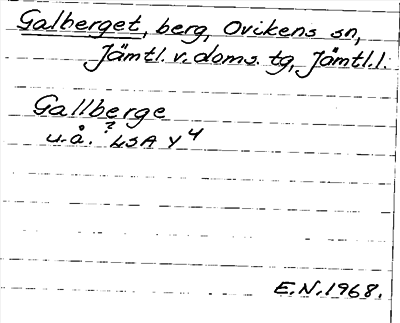 Galberget, berg, Ovikens sn,
Jämtl. v. doms. tg, Jämtl. l.
Gallberge
u.å. ? LSA Y4
E.N. 1968.